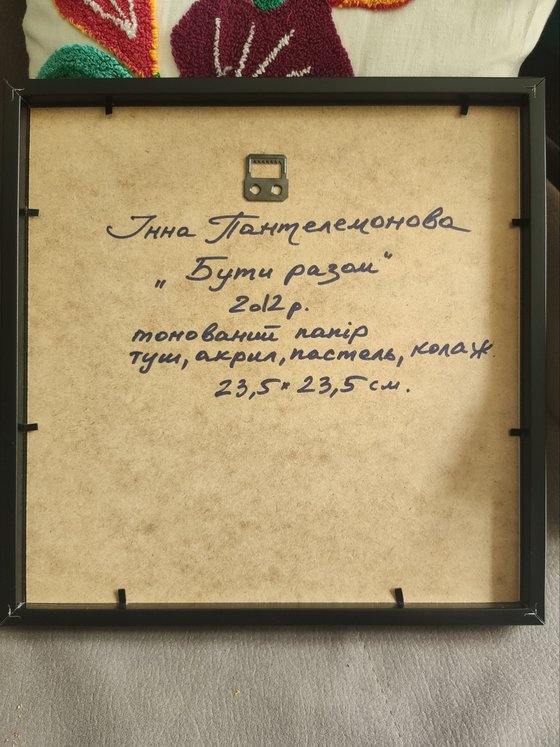 Інна Пантелемонова
„Бути разом"
2012р.
тонований папір
туш, акрил, пастель, колаж.
23,5 × 23,5 см.